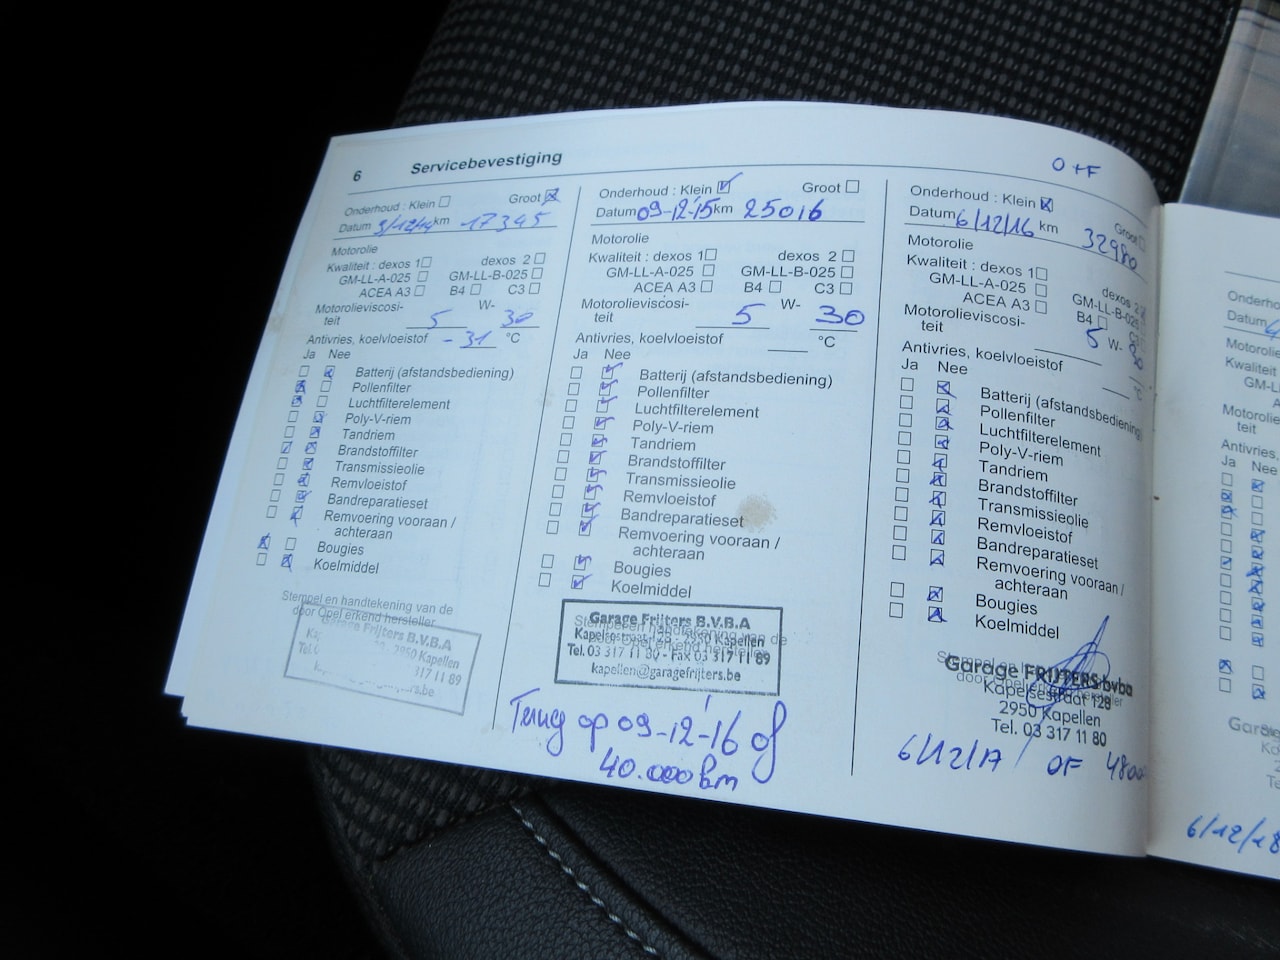 6 Servicebevestiging
Onderhoud : Klein Groot
Datum 9/12/14 km 17345
Motorolie
Kwaliteit : dexos 1 dexos 2
GM-LL-A-025 GM-LL-B-025
ACEA A3 B4 C3
Motorolieviscosi-
teit 5 W- 30
Antivries, koelvloeistof -31 °C
Ja Nee
Batterij (afstandsbediening)
Pollenfilter
Luchtfilterelement
Poly-V-riem
Tandriem
Brandstoffilter
Transmissieolie
Remvloeistof
Bandreparatieset
Remvoering vooraan /
achteraan
Bougies
Koelmiddel
Stempel en handtekening van de
door Opel erkend hersteller
Garage Frijters B.V.B.A
2950 Kapellen
Tel. 317 11 89
Onderhoud : Klein Groot
Datum 09-12-'15 km 25016
Motorolie
Kwaliteit : dexos 1 dexos 2
GM-LL-A-025 GM-LL-B-025
ACEA A3 B4 C3
Motorolieviscosi-
teit 5 W- 30
Antivries, koelvloeistof °C
Ja Nee
Batterij (afstandsbediening)
Pollenfilter
Luchtfilterelement
Poly-V-riem
Tandriem
Brandstoffilter
Transmissieolie
Remvloeistof
Bandreparatieset
Remvoering vooraan /
achteraan
Bougies
Koelmiddel
Stempel en handtekening van de
door Opel erkend hersteller
Garage Frijters B.V.B.A
Kapelsestraat 128 - 2950 Kapellen
Tel. 03 317 11 80 - Fax 03 317 11 89
kapellen@garagefrijters.be
Terug op 09-12-'16 of
40.000 km
O+F
Onderhoud : Klein Groot
Datum 6/12/16 km 32980
Motorolie
Kwaliteit : dexos 1 dexos 2
GM-LL-A-025 GM-LL-B-025
ACEA A3 B4 C3
Motorolieviscosi-
teit 5 W- 30
Antivries, koelvloeistof °C
Ja Nee
Batterij (afstandsbediening)
Pollenfilter
Luchtfilterelement
Poly-V-riem
Tandriem
Brandstoffilter
Transmissieolie
Remvloeistof
Bandreparatieset
Remvoering vooraan /
achteraan
Bougies
Koelmiddel
Stempel en
door
Garage FRIJTERS bvba
Kapelsestraat 128
2950 Kapellen
Tel. 03 317 11 80
6/12/17 OF 4800
Onderho
Datum
Motorolie
Kwaliteit
GM-L
Motorolie
teit
Antivries,
Ja Nee
Garag
6/12/18